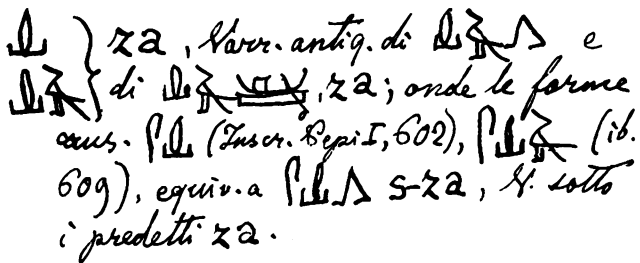 𓍑 } za, Varr. antiq. di 𓍑𓄿𓂻 e
𓍑𓄿 } di 𓍑𓄿, za; onde le forme
caus. 𓋴𓍑 (Inscr. Pepi I, 602), 𓋴𓍑𓄿 (ib.
609), equiv. a 𓋴𓍑𓂻 s-za, V. sotto
i predetti za.